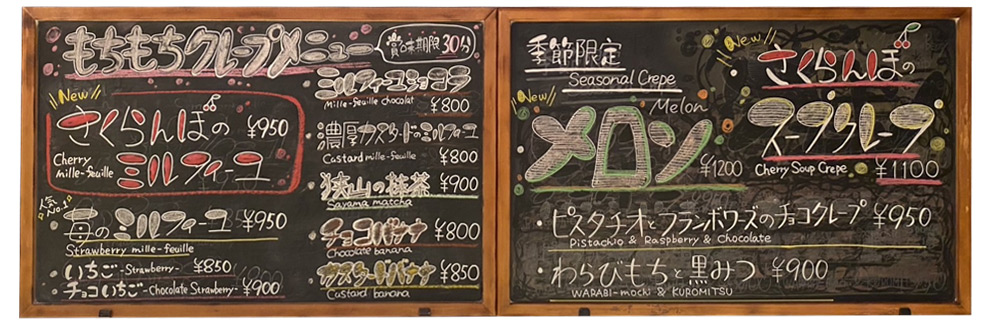 もちもちクレープメニュー
賞味期限30分
New
さくらんぼの ¥950
Cherry mille-feuille
ミルフィーユ
人気No.1
苺のミルフィーユ ¥950
Strawberry mille-feuille
・いちご -Strawberry- ¥850
・チョコいちご -Chocolate Strawberry- ¥900
・ミルフィーユショコラ
Mille-feuille chocolat ¥800
・濃厚カスタードのミルフィーユ
Custard mille-feuille ¥800
・狭山の抹茶 ¥900
Sayama matcha
・チョコバナナ ¥800
Chocolate banana
・カスタードバナナ ¥850
Custard banana
季節限定
Seasonal Crepe
New
メロン Melon
¥1200
New
さくらんぼの
スープクレープ
Cherry Soup Crepe ¥1100
・ピスタチオとフランボワーズのチョコクレープ ¥950
Pistachio & Raspberry & Chocolate
・わらびもちと黒みつ ¥900
WARABI-mochi & KUROMITSU